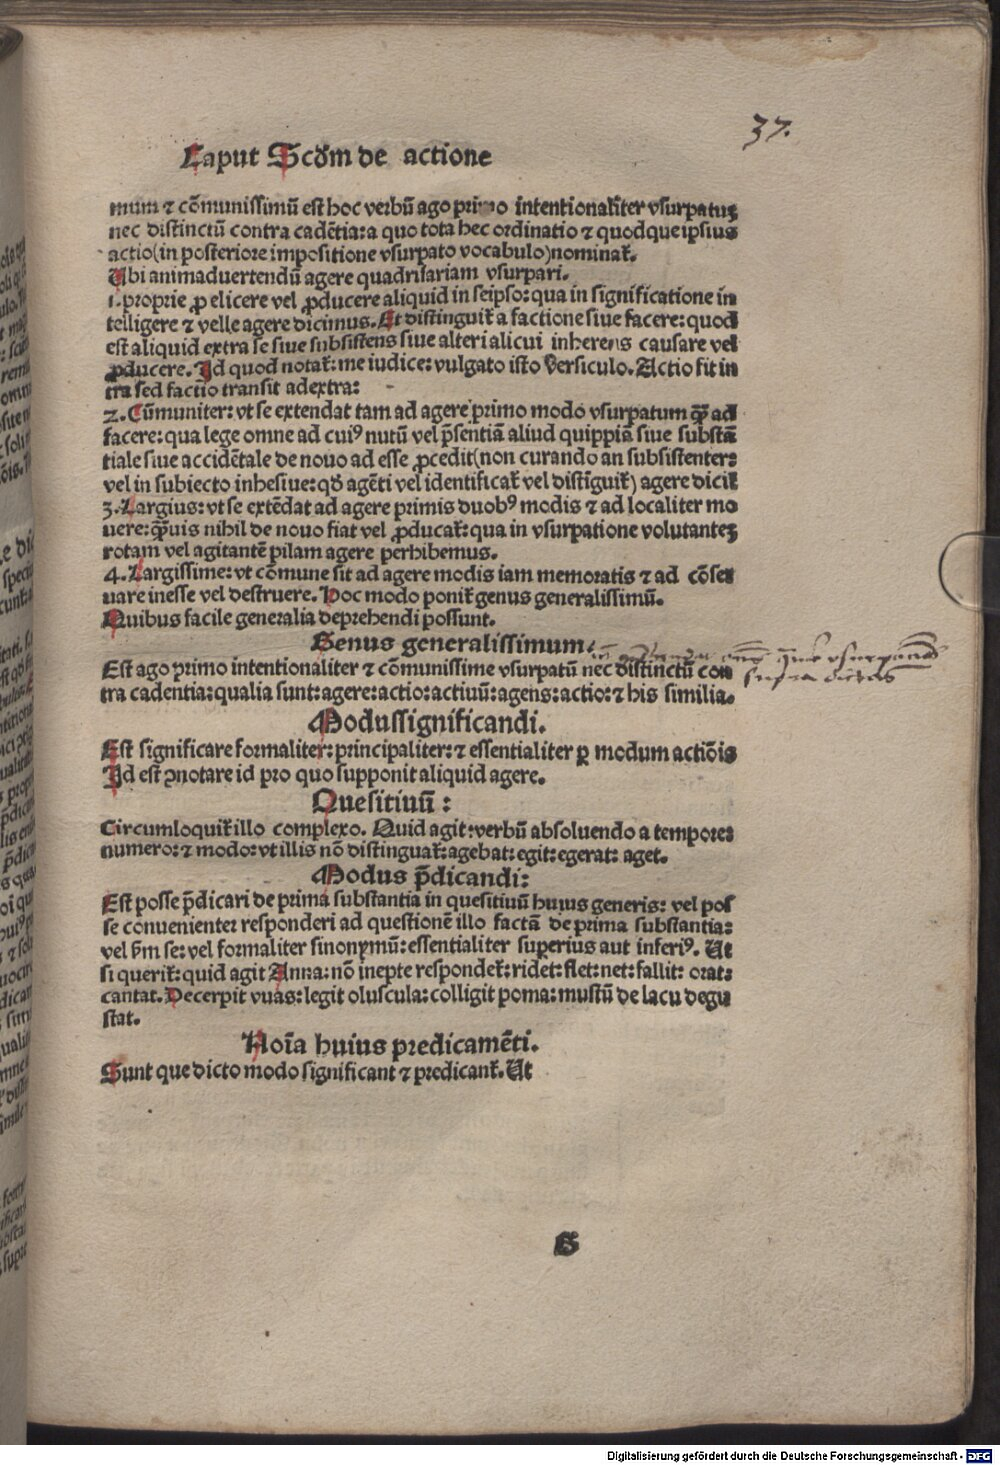 37.
Caput Scdm de actione
mum ⁊ cōmunissimū est hoc verbū ago primo intentionaliter vsurpatuʒ
nec distinctū contra cadētia: a quo tota hec ordinatio ⁊ quodque ipsius
actio(in posteriore impositione vsurpato vocabulo)nominaꝶ.
Ubi animaduertendū agere quadrifariam vsurpari.
1. proprie ꝓ elicere vel ꝓducere aliquid in seipso: qua in significatione in
telligere ⁊ velle agere dicimus. Et distinguiꝶ a factione siue facere: quod
est aliquid extra se siue subsistens siue alteri alicui inherens causare vel
ꝓducere. Id quod notaꝶ: me iudice: vulgato isto versiculo. Actio fit in
tra sed factio transit adextra:
2. Cūmuniter: vt se extendat tam ad agere primo modo vsurpatum q̄ꝫ ad
facere: qua lege omne ad cuiꝰ nutū vel p̄sentiā aliud quippiā siue substā
tiale siue accidētale de nouo ad esse ꝓcedit(non curando an subsistenter:
vel in subiecto inhesiue: qđ agēti vel identificaꝶ vel distīguiꝶ) agere diciꝶ
3. Largius: vt se extēdat ad agere primis duobꝰ modis ⁊ ad localiter mo
uere: q̄ꝫuis nihil de nouo fiat vel ꝓducaꝶ: qua in vsurpatione volutanteʒ
rotam vel agitantē pilam agere perhibemus.
4. Largissime: vt cōmune sit ad agere modis iam memoratis ⁊ ad cōser
uare inesse vel destruere. Hoc modo poniꝶ genus generalissimū.
Quibus facile generalia deprehendi possunt.
Genus generalissimum:
Est ago primo intentionaliter ⁊ cōmunissime vsurpatū nec distinctū con
tra cadentia: qualia sunt: agere: actio: actiuū: agens: actio: ⁊ his similia.
Modussignificandi.
Est significare formaliter: principaliter: ⁊ essentialiter ꝑ modum actiōis
Id est ꝯnotare id pro quo supponit aliquid agere.
Quesitiuū:
Circumloquiꝶ illo complexo. Quid agit: verbū absoluendo a tempore:
numero: ⁊ modo: vt illis nō distinguaꝶ: agebat: egit: egerat: aget.
Modus p̄dicandi:
Est posse p̄dicari de prima substantia in quesitiuū huius generis: vel pos
se conuenienter responderi ad questionē illo factā de prima substantia:
vel ẜm se: vel formaliter sinonymū: essentialiter superius aut inferiꝰ. Ut
si queriꝶ: quid agit Anna: nō inepte respondeꝶ: ridet: flet: net: fallit: orat:
cantat. Decerpit vuas: legit oluscula: colligit poma: mustū de lacu degu
stat.
Noīa huius predicamēti.
Sunt que dicto modo significant ⁊ predicanꝶ. Ut
G
Digitalisierung gefördert durch die Deutsche Forschungsgemeinschaft - DFG